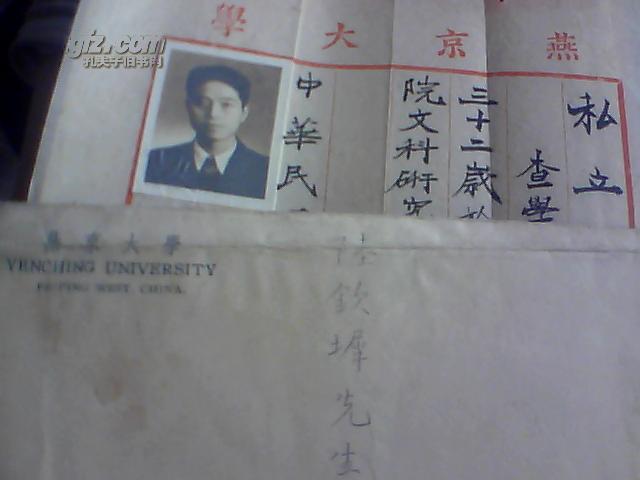 燕京大學
私立
查學
三十二歲於
院文科研究
中華民
gjz.com
孔夫子旧书网
燕京大學
YENCHING UNIVERSITY
PEIPING WEST, CHINA.
陸欽墀先生